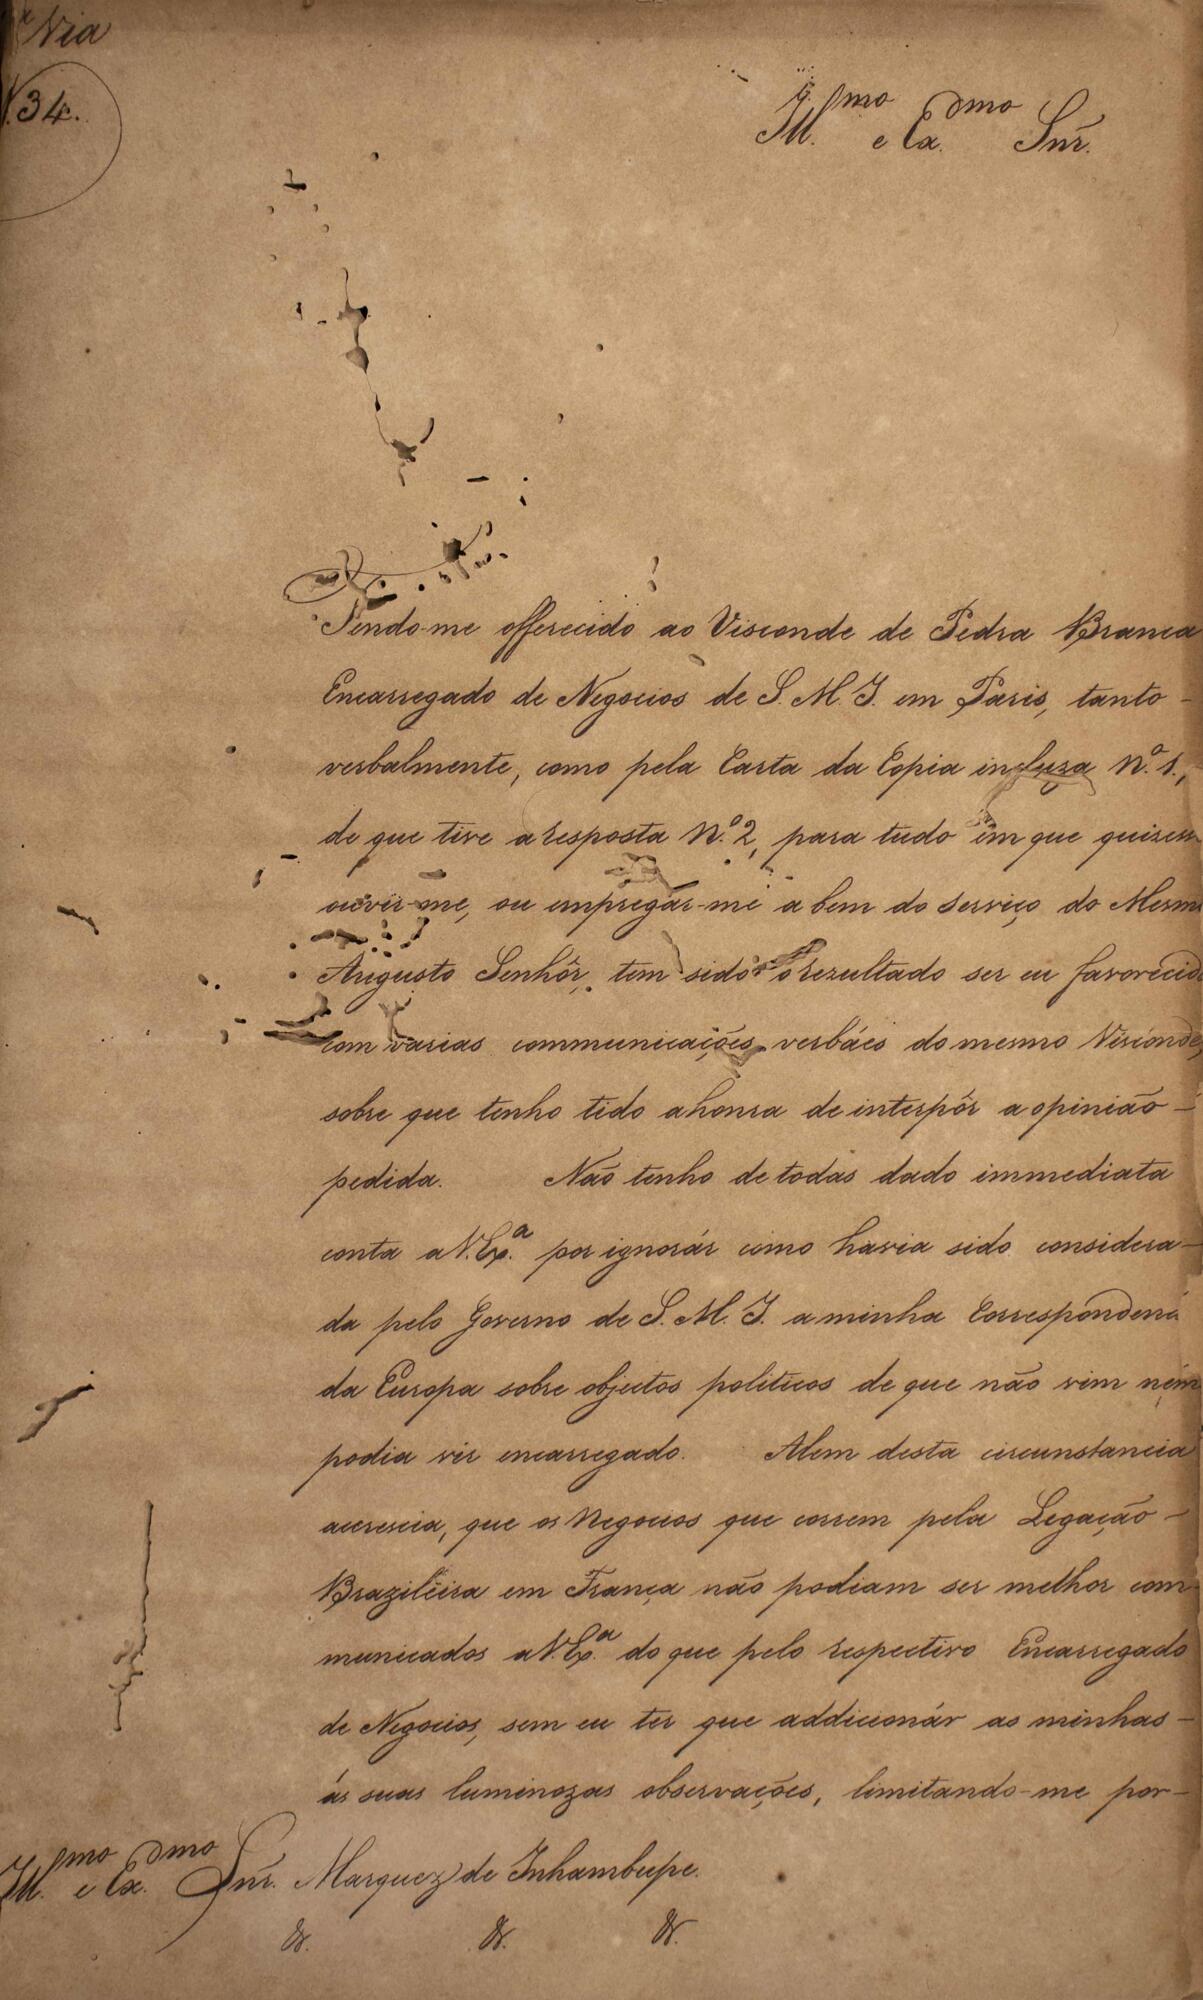 ª Via
N. 34.
Ill.mo e Ex.mo Snr.
Tendo-me offerecido ao Visconde de Pedra Branca
Encarregado de Negocios de S. M. I. em Paris, tanto -
verbalmente, como pela Carta da Copia incluza N.º 1.,
de que tive a resposta N.º 2, para tudo em que quizesse
ouvir-me, ou empregar-me a bem do serviço do Mesmo
Augusto Senhôr, tem sido o rezultado ser eu favorecido
com varias communicações verbáes do mesmo Visconde,
sobre que tenho tido a honra de interpôr a opinião -
pedida. Não tenho de todas dado immediata
conta a V. Ex.ª por ignorár como havia sido considera-
da pelo Governo de S. M. I. a minha Correspondenc
da Europa sobre objectos politicos de que não vim nem
podia vir encarregado. Alem desta circunstancia
accrescia, que os Negocios que correm pela Legação -
Brazileira em França não podiam ser melhor com-
municados a V. Ex.ª do que pelo respectivo Encarregado
de Negocios, sem eu ter que addicionár as minhas -
ás suas luminozas observações, limitando-me por-
Ill.mo e Ex.mo Snr. Marquez de Inhambupe.
&. &. &.